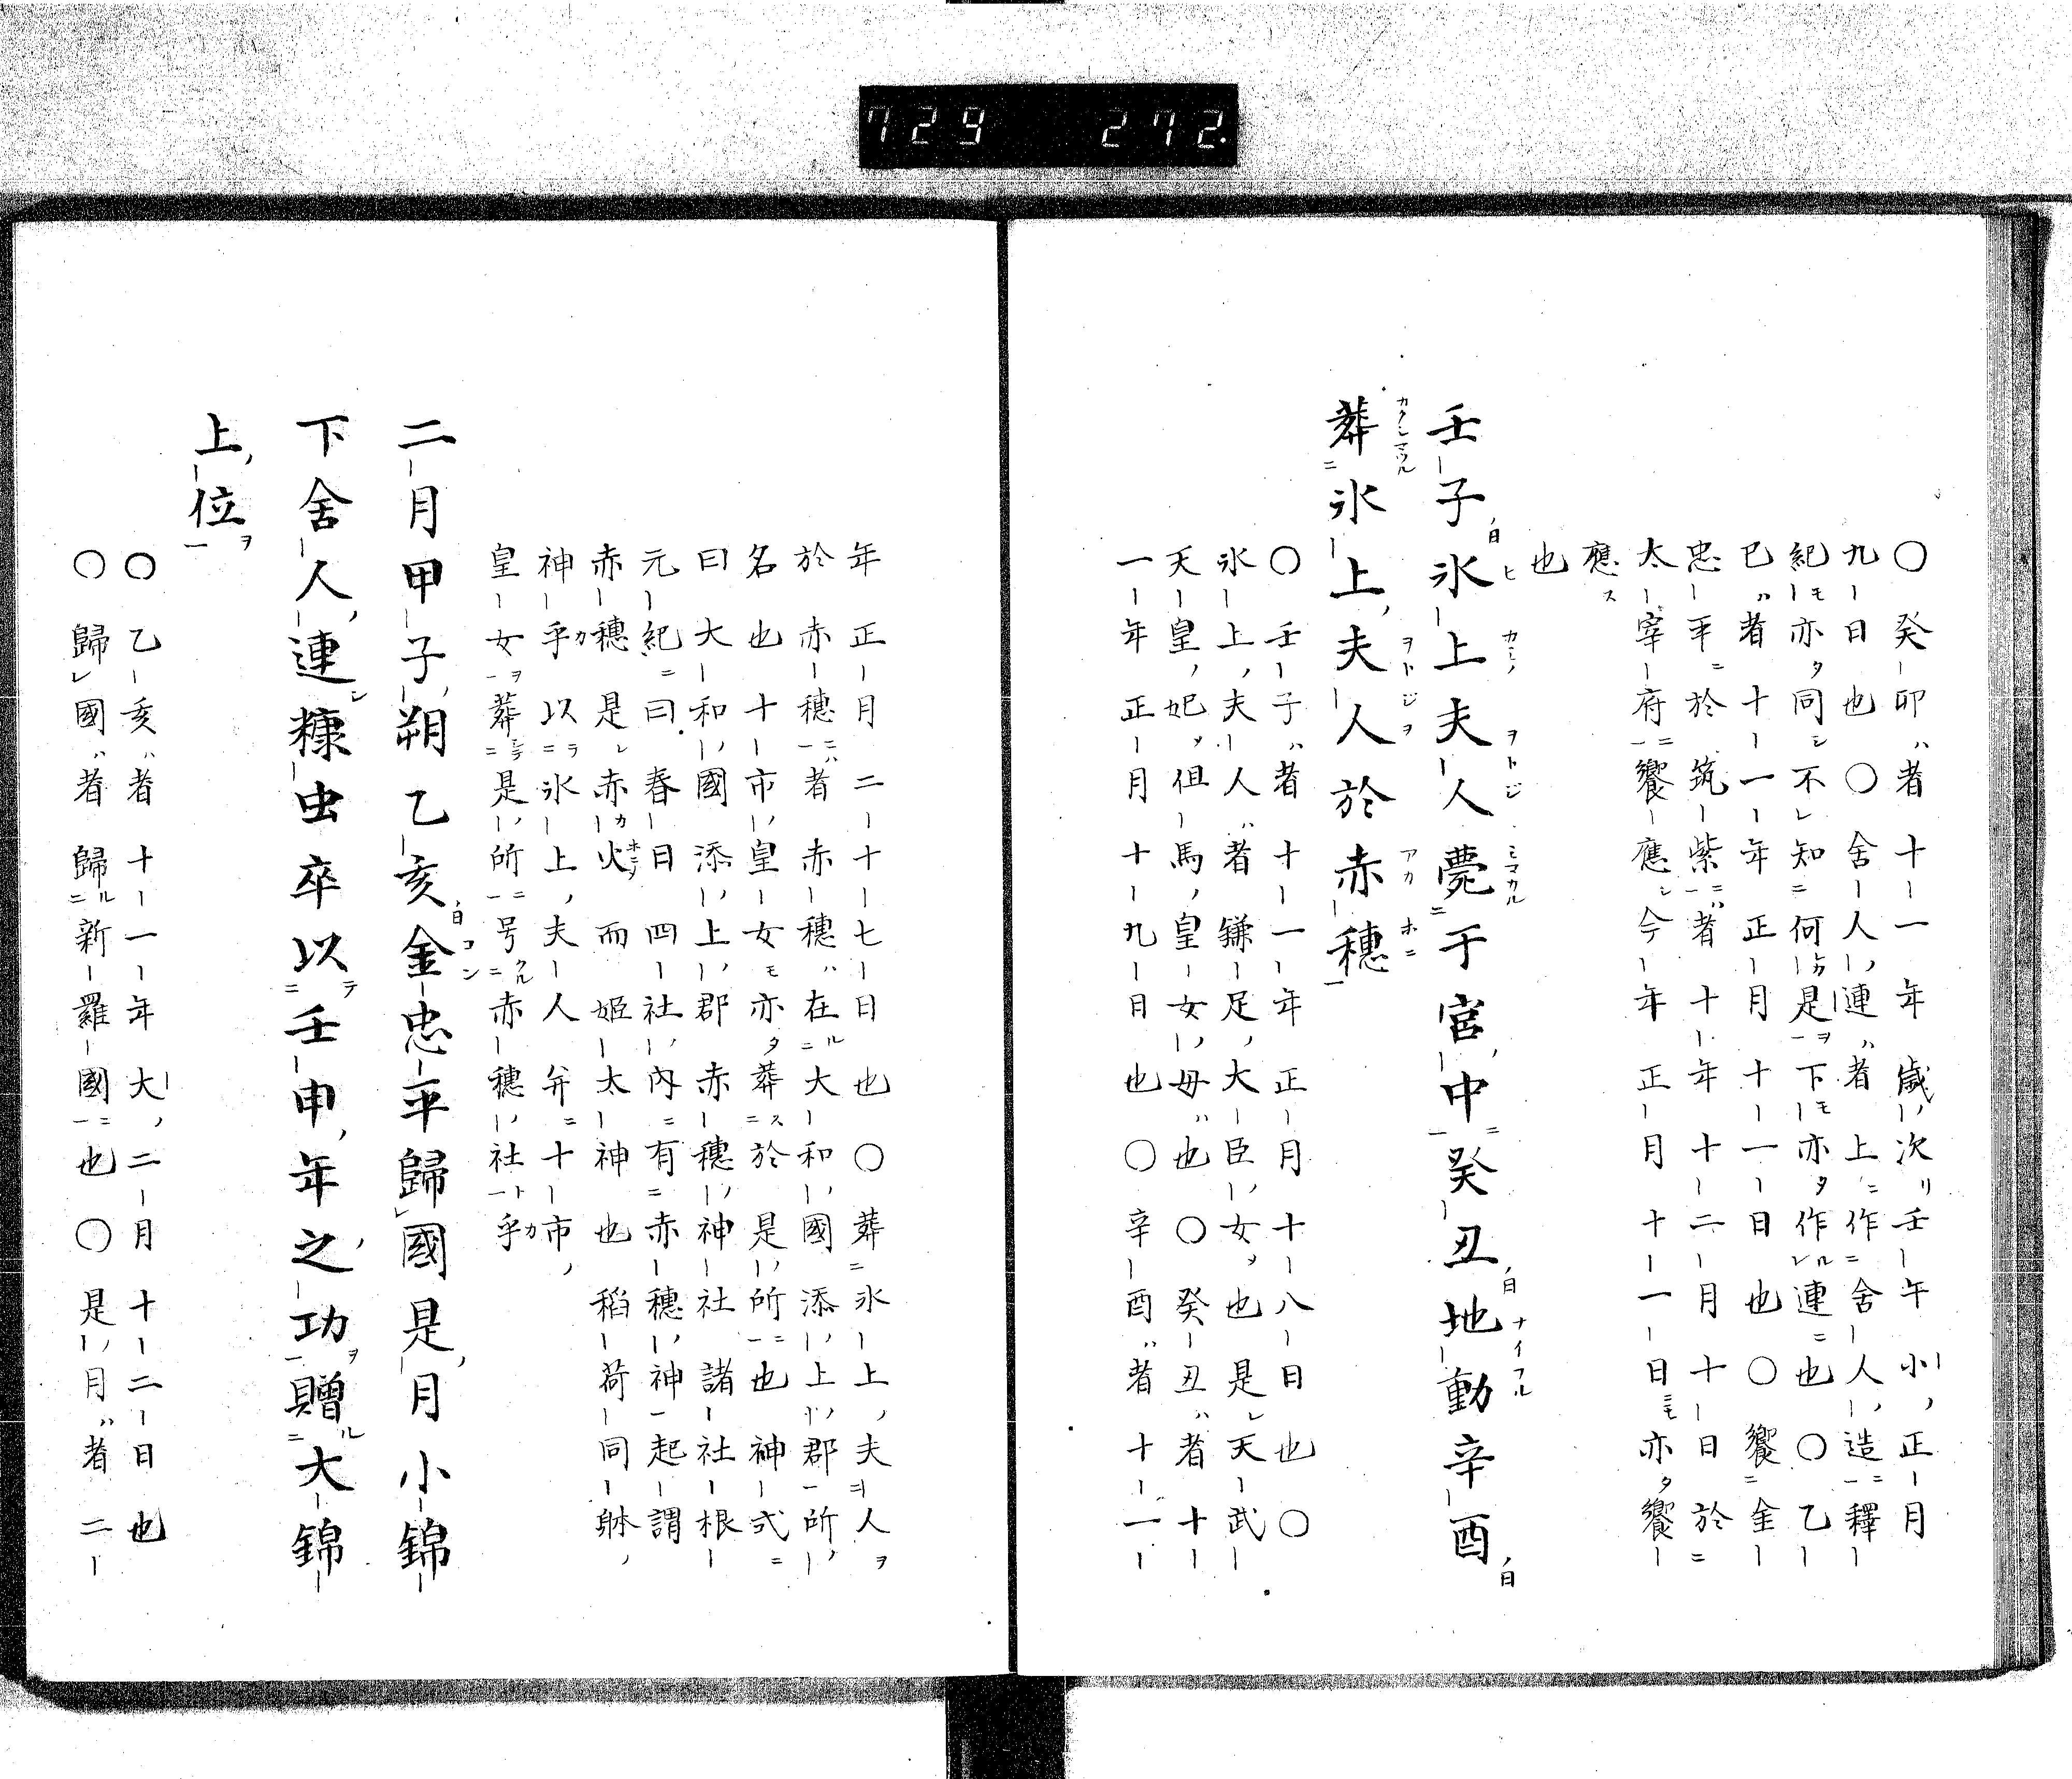 729 272.
○癸卯ハ者十一年歳次リ壬午小正月
九日也○舎人連ハ者上ニ作ニ舎人造一ニ釋
紀モ亦タ同シ不レ知ニ何トカ是一ヲ下モ亦タ作ルレ連ニ也○乙
巳ハ者十一年正月十一日也○饗ニ金
忠平ニ於筑紫一ニハ者十年十二月十日於ニ
太宰府一ニ饗應シ今年正月十一日ニモ亦タ饗
應ス
也
壬子日氷上夫人薨ニ于宮中一ニ癸丑日地動辛酉日
ヒ カミノ ヲトジ ミマカル ナイフル
葬ニ氷上夫人於赤穂一
カクシマツル ヲトジヲ アカ ホニ
○壬子ハ者十一年正月十八日也○
氷上夫人ハ者鎌足大臣女メ也是レ天武
天皇妃メ但馬皇女母ハ也○癸丑ハ者十
一年正月十九日也○辛酉ハ者十一
年正月二十七日也○葬ニ氷上夫人ヲ
於赤穂一ニハ者赤穂ハ在ルニ大和國添上郡所
名也十市皇女モ亦タ葬スニ於是所一ニ也神式ニ
曰大和國添上郡赤穂神社諸社根
元紀ニ曰春日四社内ニ有ニ赤穂神一起謂
赤穂是レ赤カ火ホニノ而姫太神也稻荷同躰
神乎カ以ラニ氷上夫人并ニ十市
皇女ヲ一葬シテニ是所一ニ号クルニ赤穂社一ト乎カ
二月甲子朔乙亥日金コン忠平歸レ國是月小錦
下舎人連シ糠虫卒以ラニ壬申年之功ヲ一贈ルニ大錦
上位ヲ一
○乙亥ハ者十一年大二月十二日也
○歸レ國ハ者歸ルニ新羅國一ニ也○是月ハ者二